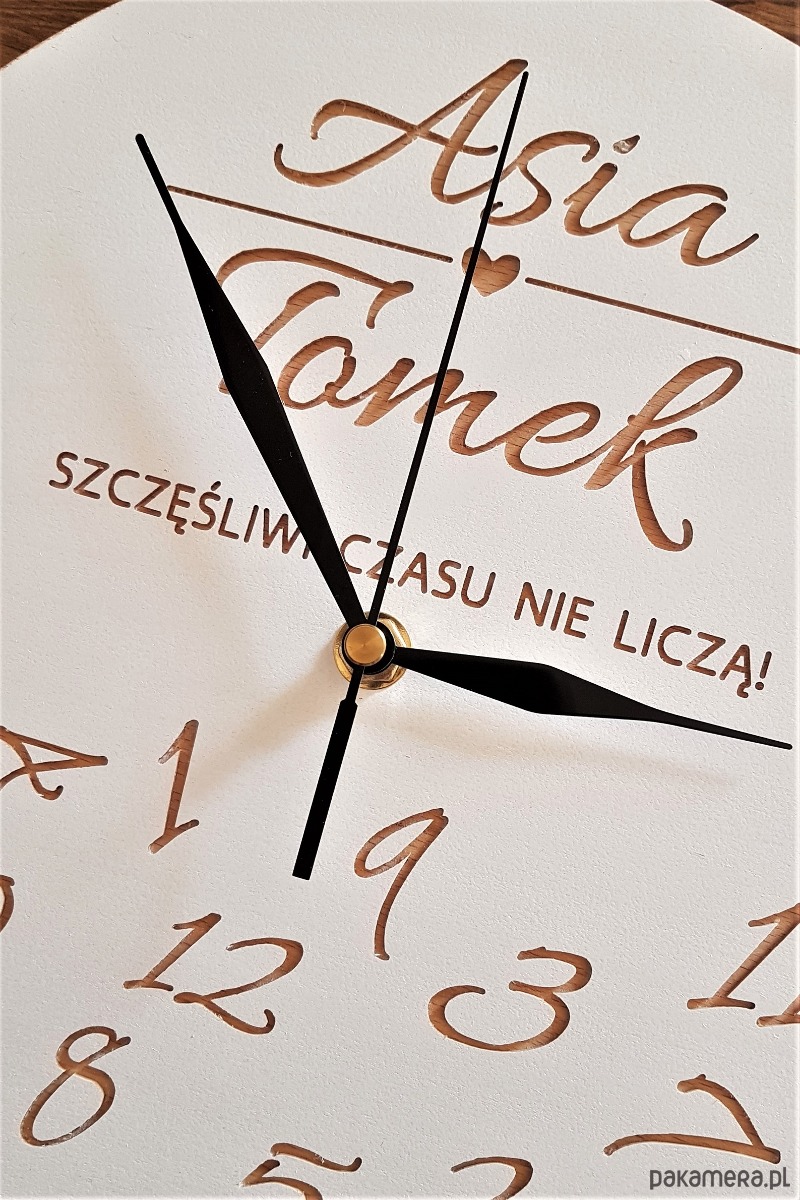 Asia
Tomek
SZCZĘŚLIWI CZASU NIE LICZĄ!
1
9
12
3
11
8
5
pakamera.pl